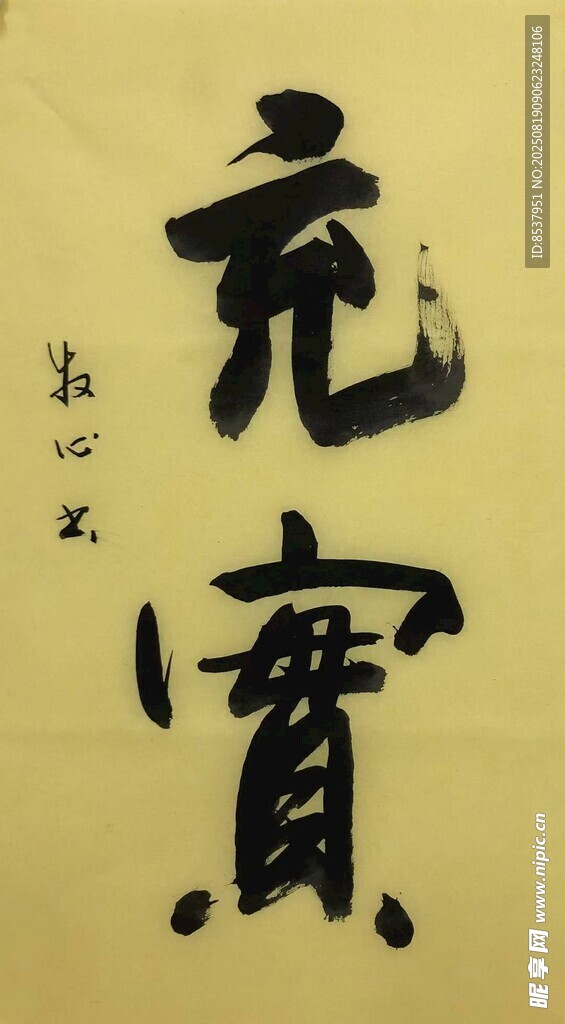 充實
牧心书
ID:8537951 NO:20250819090623248106
昵享网 www.nipic.cn